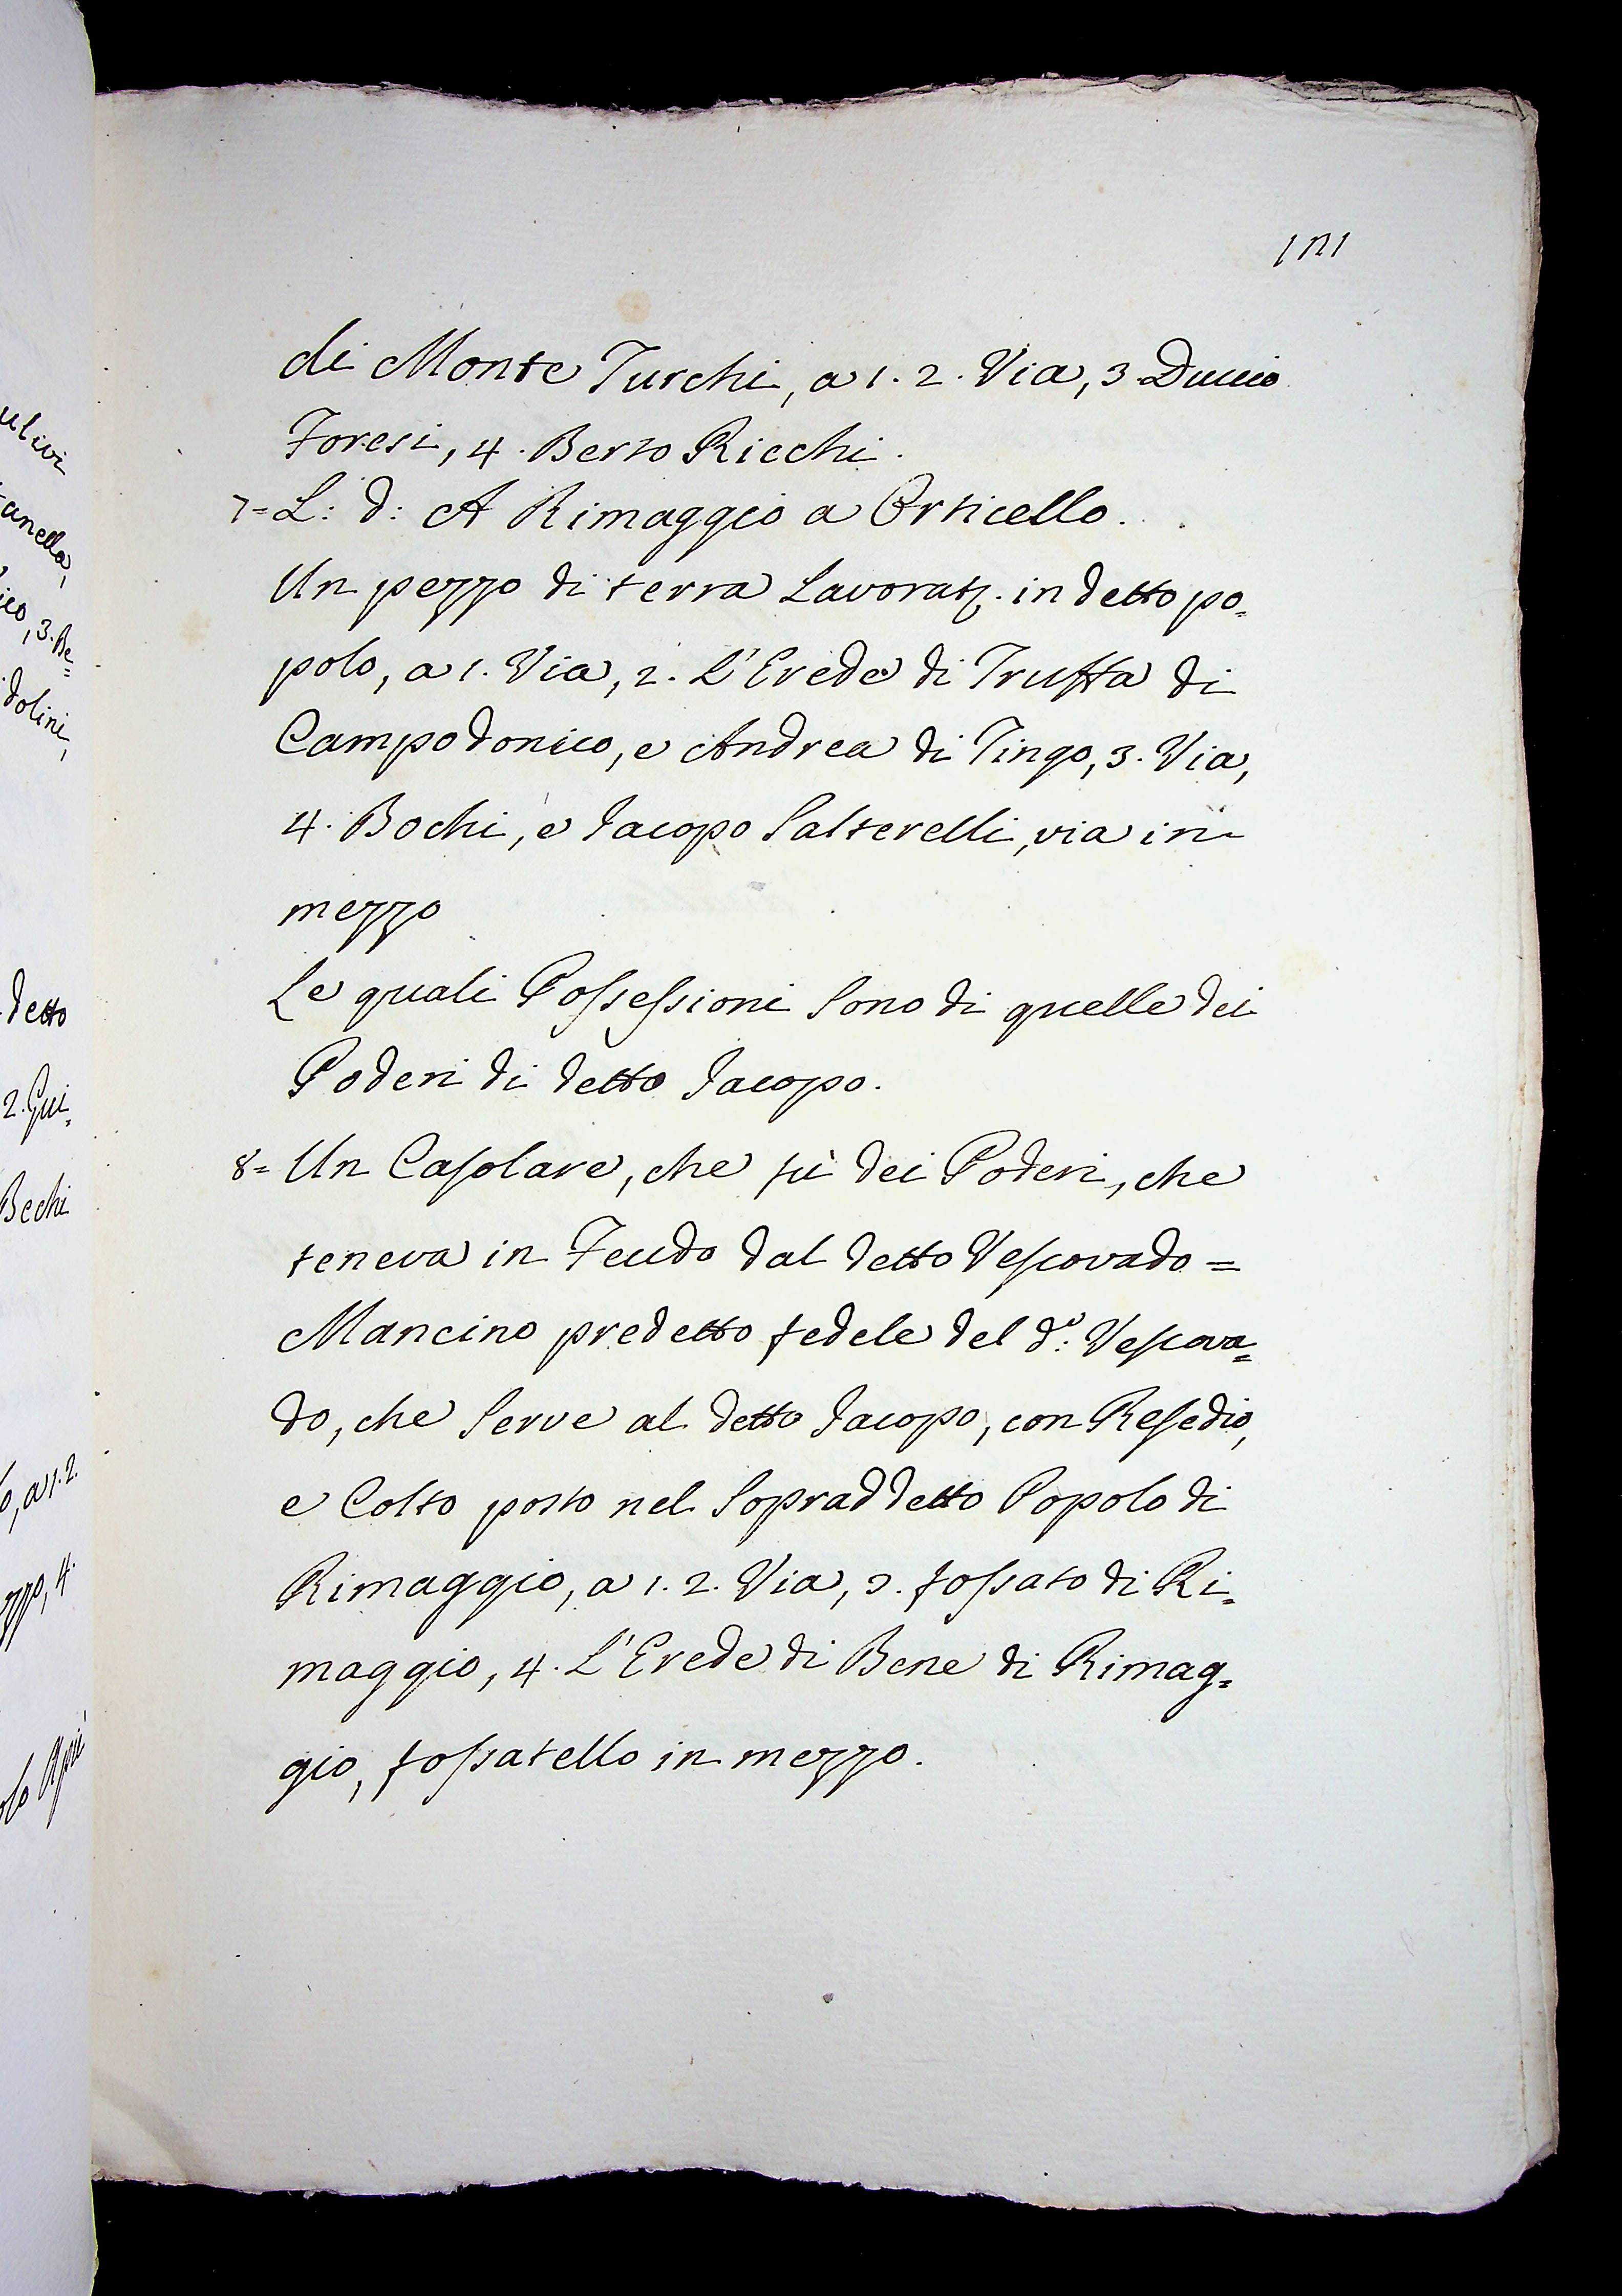 171
di Monte Turchi, a 1. 2. Via, 3. Duccio
Foresi, 4. Berto Ricchi.
7= L: d: A Rimaggio a Orticello.
Un pezzo di terra Lavorat. in detto po=
polo, a 1. Via, 2. L'Erede di Truffa di
Campodonico, e Andrea di Tingo, 3. Via,
4. Bochi, e Jacopo Salterelli, via in
mezzo
Le quali Possessioni sono di quelle dei
Poderi di detto Jacopo.
8= Un Casolare, che fù dei Poderi, che
teneva in Feudo dal detto Vescovado=
Mancino predetto fedele del d.º Vescova=
do, che serve al detto Jacopo, con Resedio,
e Colto posto nel Sopraddetto Popolo di
Rimaggio, a 1. 2. Via, 3. fossato di Ri=
maggio, 4. L'Erede di Bene di Rimag=
gio, fossatello in mezzo.